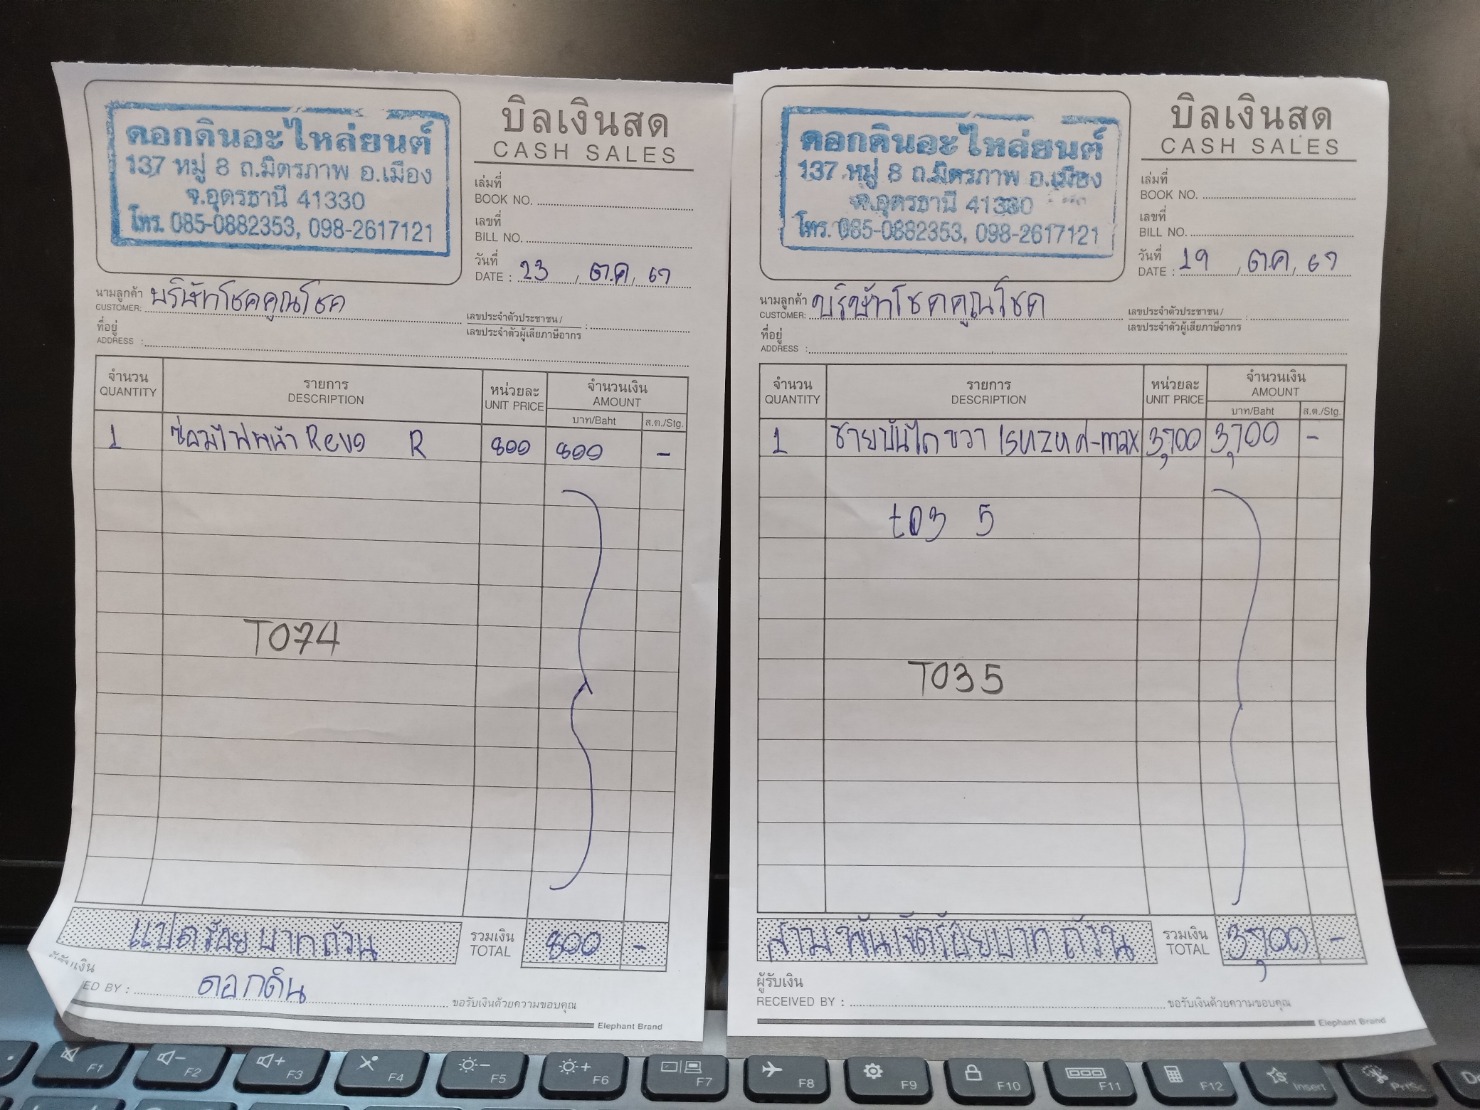 ดอกดินอะไหล่ยนต์
137 หมู่ 8 ถ.มิตรภาพ อ.เมือง
จ.อุดรธานี 41330
โทร. 085-0882353, 098-2617121
บิลเงินสด
CASH SALES
เล่มที่
BOOK NO.
เลขที่
BILL NO.
วันที่
DATE : 23 , ต.ค, 67
นามลูกค้า
CUSTOMER: บริษัทโชคคูณโชค
ที่อยู่
ADDRESS :
เลขประจำตัวประชาชน /
เลขประจำตัวผู้เสียภาษีอากร :
จำนวน QUANTITY รายการ DESCRIPTION หน่วยละ UNIT PRICE จำนวนเงิน AMOUNT
บาท/Baht ส.ต./Stg.
1 ซ่อมไฟหน้า Revo R 800 800 -
T074
แปดร้อยบาทถ้วน รวมเงิน TOTAL 800 -
เงิน
ED BY : ดอกดิน ขอรับเงินด้วยความขอบคุณ
Elephant Brand
ดอกดินอะไหล่ยนต์
137 หมู่ 8 ถ.มิตรภาพ อ.เมือง
จ.อุดรธานี 41330
โทร. 085-0882353, 098-2617121
บิลเงินสด
CASH SALES
เล่มที่
BOOK NO.
เลขที่
BILL NO.
วันที่
DATE : 19 , ต.ค, 67
นามลูกค้า
CUSTOMER: บริษัทโชคคูณโชค
ที่อยู่
ADDRESS :
เลขประจำตัวประชาชน /
เลขประจำตัวผู้เสียภาษีอากร :
จำนวน QUANTITY รายการ DESCRIPTION หน่วยละ UNIT PRICE จำนวนเงิน AMOUNT
บาท/Baht ส.ต./Stg.
1 ชายบันได ขวา Isuzu d-max 3,700 3,700 -
t03 5
T035
สามพันเจ็ดร้อยบาทถ้วน รวมเงิน TOTAL 3,700 -
ผู้รับเงิน
RECEIVED BY : ขอรับเงินด้วยความขอบคุณ
Elephant Brand
F1 F2 F3 F4 F5 F6 F7 F8 F9 F10 F11 F12 Insert PrtSc